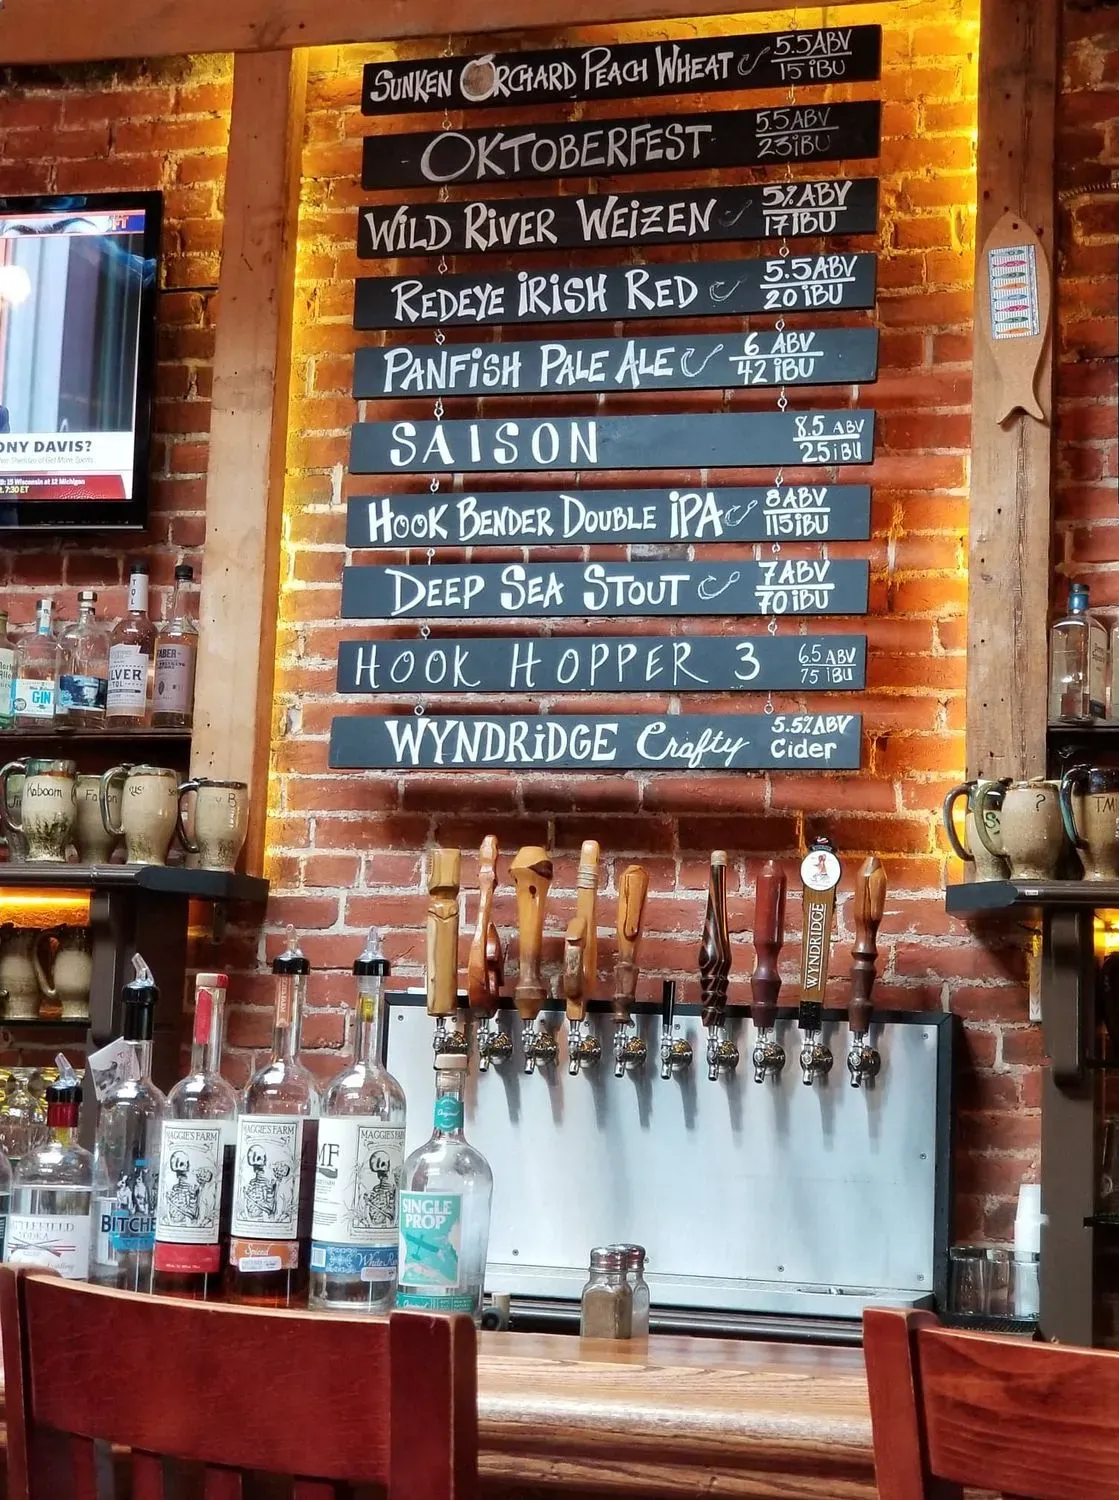 SUNKEN ORCHARD PEACH WHEAT 5.5ABV
15 iBU
OKTOBERFEST 5.5ABV
23iBU
WiLD RiVER WEiZEN 5%ABV
17IBU
REDEYE iRiSH RED 5.5ABV
20 iBU
PANFiSH PALE ALE 6 ABV
42 iBU
SAISON 8.5 ABV
25iBU
HOOK BENDER DOUBLE iPA 8ABV
115iBU
DEEP SEA STOUT 7ABV
70 iBU
HOOK HOPPER 3 6.5 ABV
75 iBU
WYNDRiDGE Crafty 5.5%ABV
Cider
ONY DAVIS?
15 Wisconsin at 12 Michigan
7:30 ET
GIN
Kaboom
B
?
WYNDRIDGE
MAGGIE'S FARM
MAGGIE'S FARM
Spiced
MAGGIE'S FARM
White
BITCHE
VODKA
SINGLE
PROP
Original